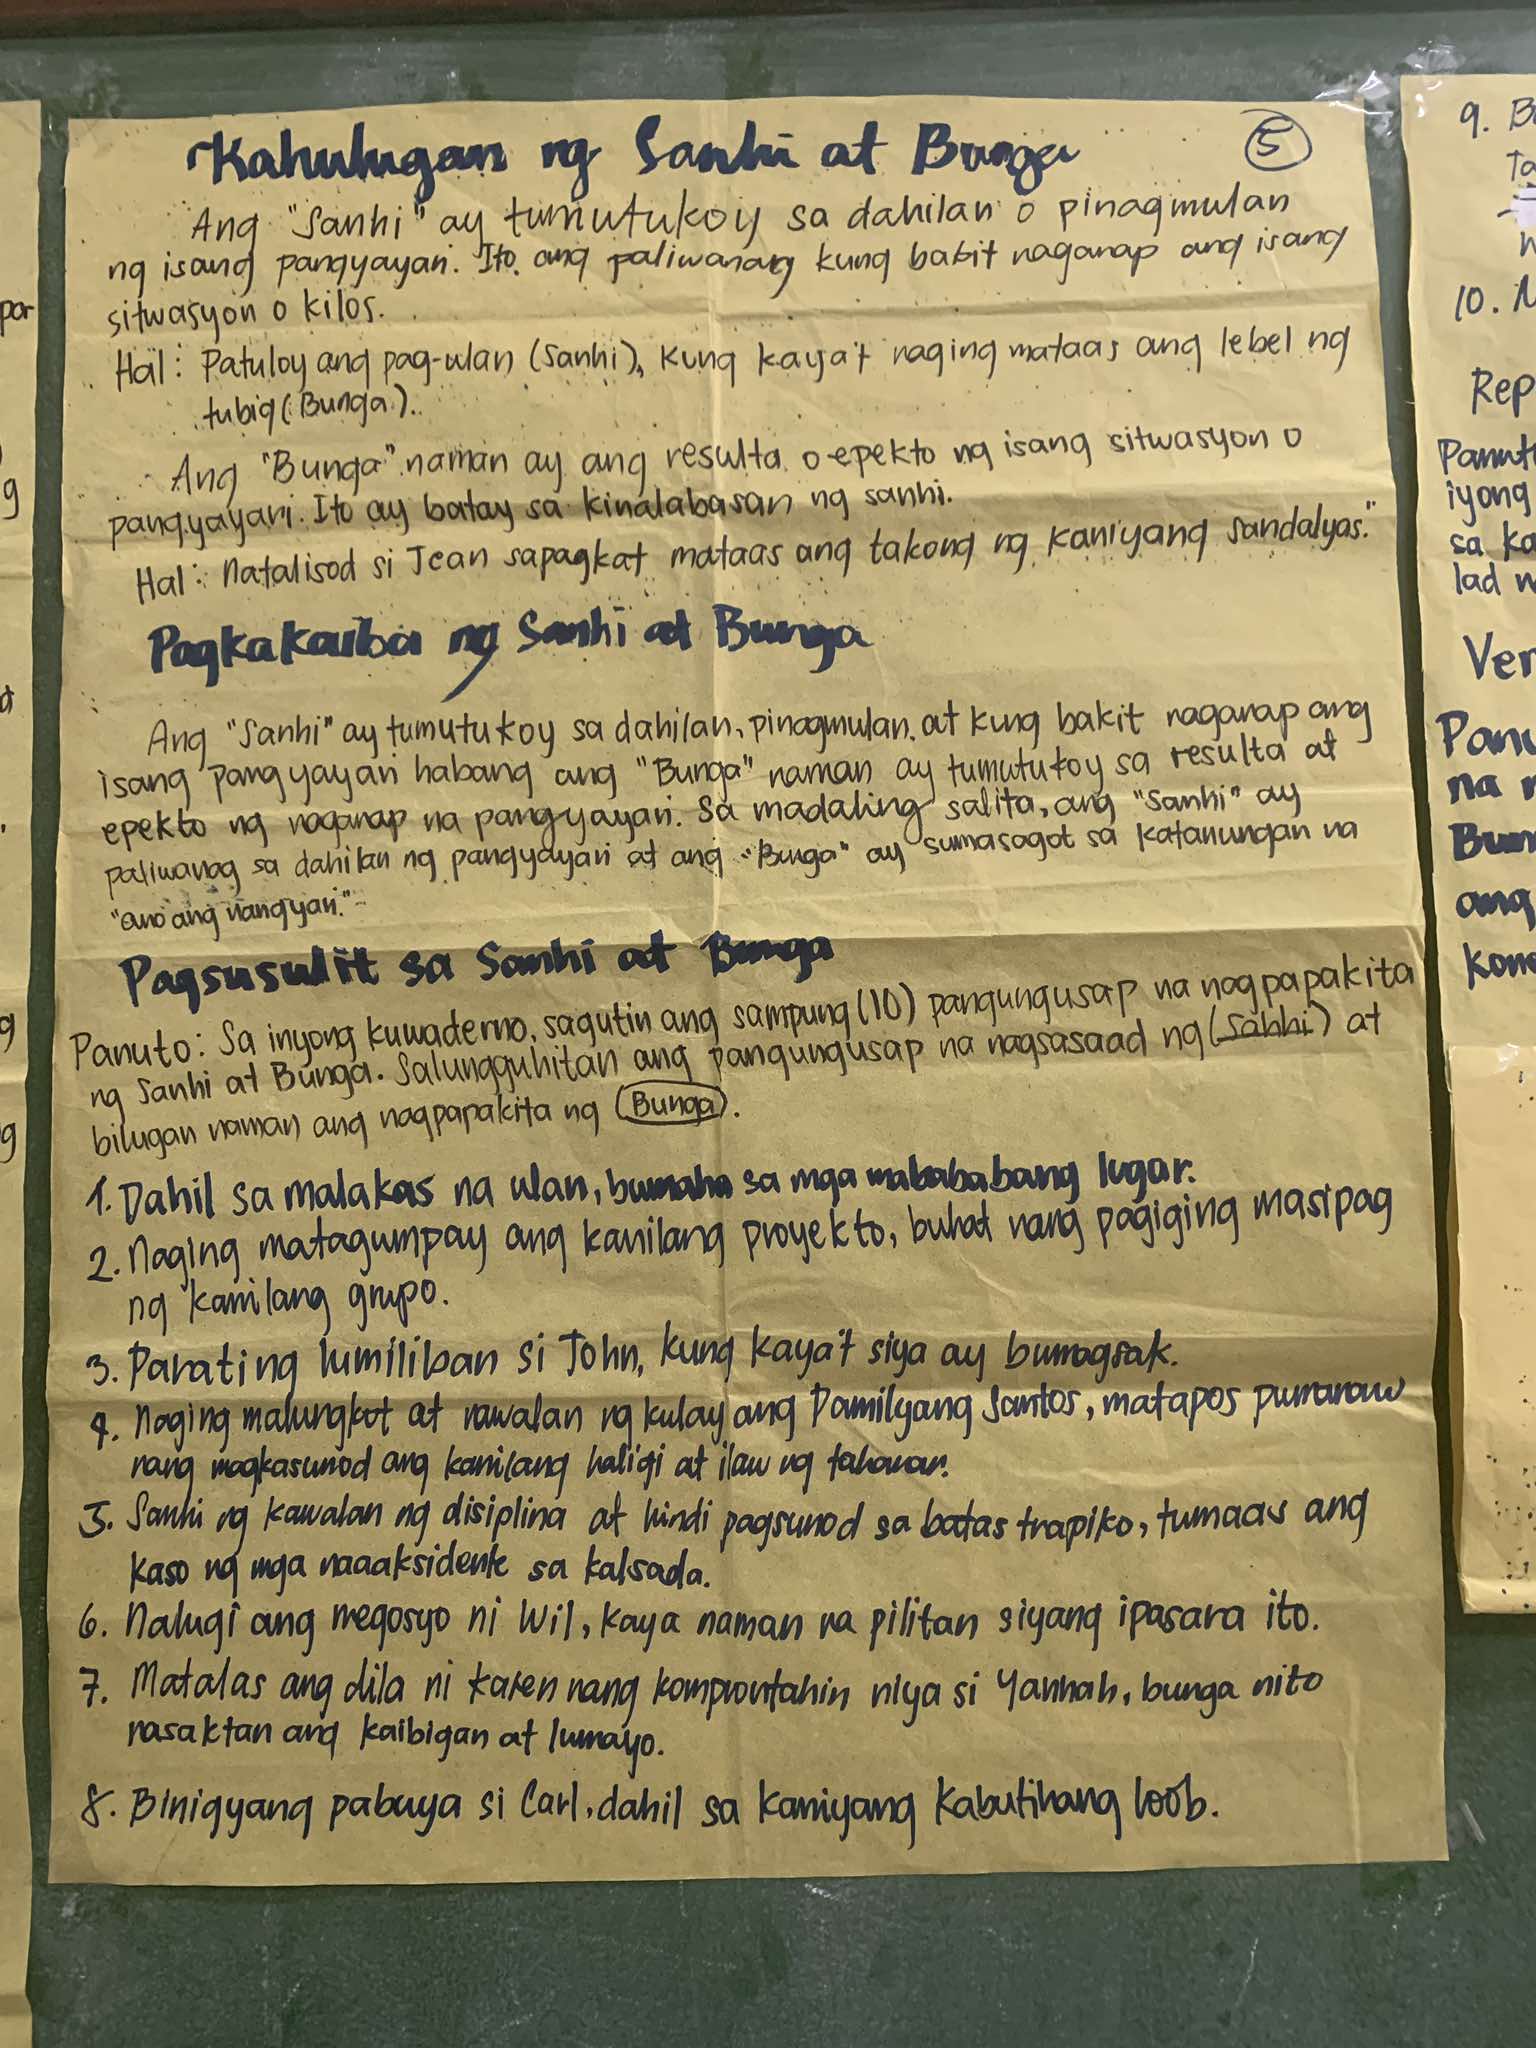 Kahulugan ng Sanhi at Bunga
5
Ang "Sanhi" ay tumutukoy sa dahilan o pinagmulan
ng isang pangyayari. Ito ang paliwanag kung bakit naganap ang isang
sitwasyon o kilos.
Hal: Patuloy ang pag-ulan (Sanhi), kung kaya't naging mataas ang lebel ng
tubig (Bunga).
Ang "Bunga" naman ay ang resulta o epekto ng isang sitwasyon o
pangyayari. Ito ay batay sa kinalabasan ng sanhi.
Hal: Natalisod si Jean sapagkat mataas ang takong ng kaniyang sandalyas."
Pagkakaiba ng Sanhi at Bunga
Ang "Sanhi" ay tumutukoy sa dahilan, pinagmulan, at kung bakit naganap ang
isang pangyayari habang ang "Bunga" naman ay tumutukoy sa resulta at
epekto ng naganap na pangyayari. Sa madaling salita, ang "Sanhi" ay
paliwanag sa dahilan ng pangyayari at ang "Bunga" ay sumasagot sa katanungan na
"ano ang nangyari."
Pagsusulit sa Sanhi at Bunga
Panuto: Sa inyong kuwaderno, sagutin ang sampung (10) pangungusap na nagpapakita
ng Sanhi at Bunga. Salungguhitan ang pangungusap na nagsasaad ng (Sanhi) at
bilugan naman ang nagpapakita ng (Bunga).
1. Dahil sa malakas na ulan, bumaha sa mga mabababang lugar.
2. Naging matagumpay ang kanilang proyekto, buhat nang pagiging masipag
ng kanilang grupo.
3. Parating lumiliban si John, kung kaya't siya ay bumagsak.
4. Naging malungkot at nawalan ng kulay ang Pamilyang Santos, matapos pumanaw
nang magkasunod ang kanilang haligi at ilaw ng tahanan.
5. Sanhi ng kawalan ng disiplina at hindi pagsunod sa batas trapiko, tumaas ang
kaso ng mga naaaksidente sa kalsada.
6. Nalugi ang negosyo ni Wil, kaya naman na pilitan siyang ipasara ito.
7. Matalas ang dila ni Karen nang komprontahin niya si Yannah, bunga nito
nasaktan ang kaibigan at lumayo.
8. Binigyang pabuya si Carl, dahil sa kaniyang kabutihang loob.
9.
10.
iyong